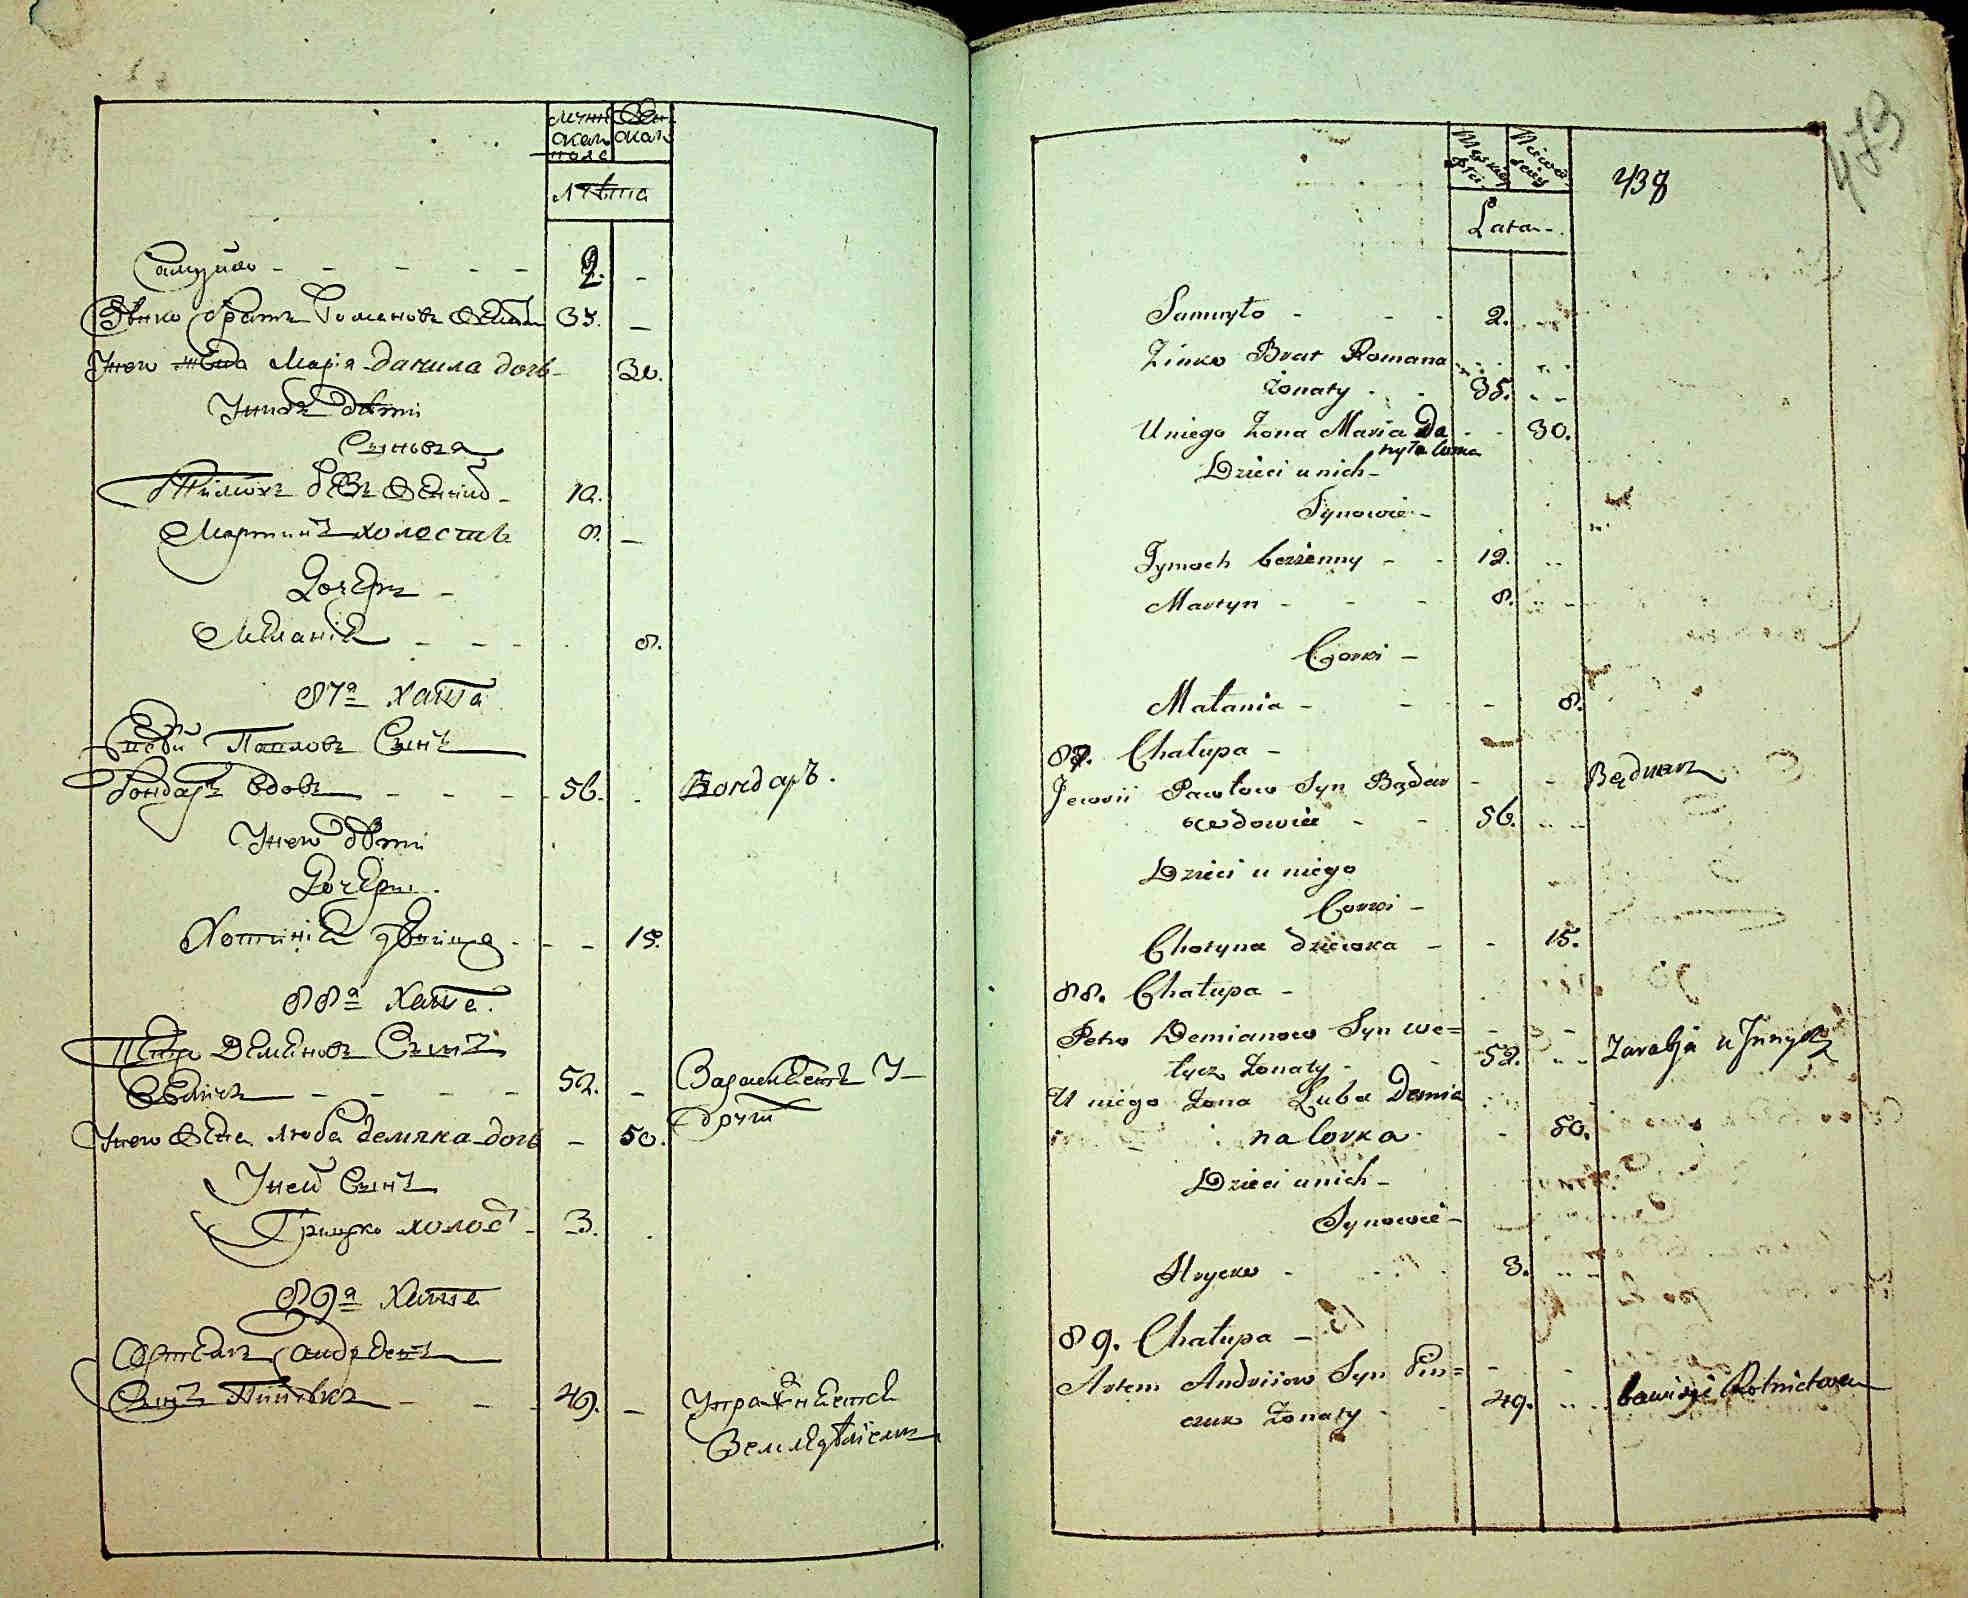 мужеска пола
женска
лѣта
Самуйло - - - - 2. -
Зѣнко братъ Романовъ женатъ 35. -
У него жена Марія данила дочь - 30.
У нихъ дѣти
Сыновья
Тимохъ безъ женно - 12.
Мартинъ холостъ 8. -
Дочеръ -
Меланія - - - 8.
87а хата
Павловъ Сынъ
бондаръ вдовъ - - - - 56. - Бондаръ.
У него дѣти
Дочеры.
Хотинія дѣвица - - - 15.
88а хата.
Петро Деменовъ Сынъ
- - - - 52. - Зарабляетъ У
Жена люба демяна дочь - 50. другихъ
У ней Сынъ
Грицко холост - 3.
89а хата
Артемъ Андреевъ
Сынъ Пинчукъ - - - 49. - Упражняется
Земледѣлiемъ
473
Męskiey płci
Niewieściey
438
Lata
Samuyło - - - 2.
Zinko Brat Romana
Żonaty - - 35.
U niego Żona Maria Da - - 30.
nyła Curka
Dzieci u nich -
Synowie -
Tymoch bezżenny - - 12.
Martyn - - - 8.
Corki -
Małania - - - 8.
87. Chałupa -
Pawłow Syn Bądar - - Będnarz
wdowiec - - 56.
Dzieci u niego
Corki -
Chotyna dziewka - - 15.
88. Chałupa -
Petro Demianow Syn we= - -
łycz Żonaty - - 52. Zarabja u Innych
U niego Żona Luba Demia
na Corka - 50.
Dzieci u nich -
Synowie -
Hrycko - - 3.
89. Chałupa -
Artem Andriiow Syn Pin= - -
czuk Żonaty - - 49. bawi się Rolnictwem